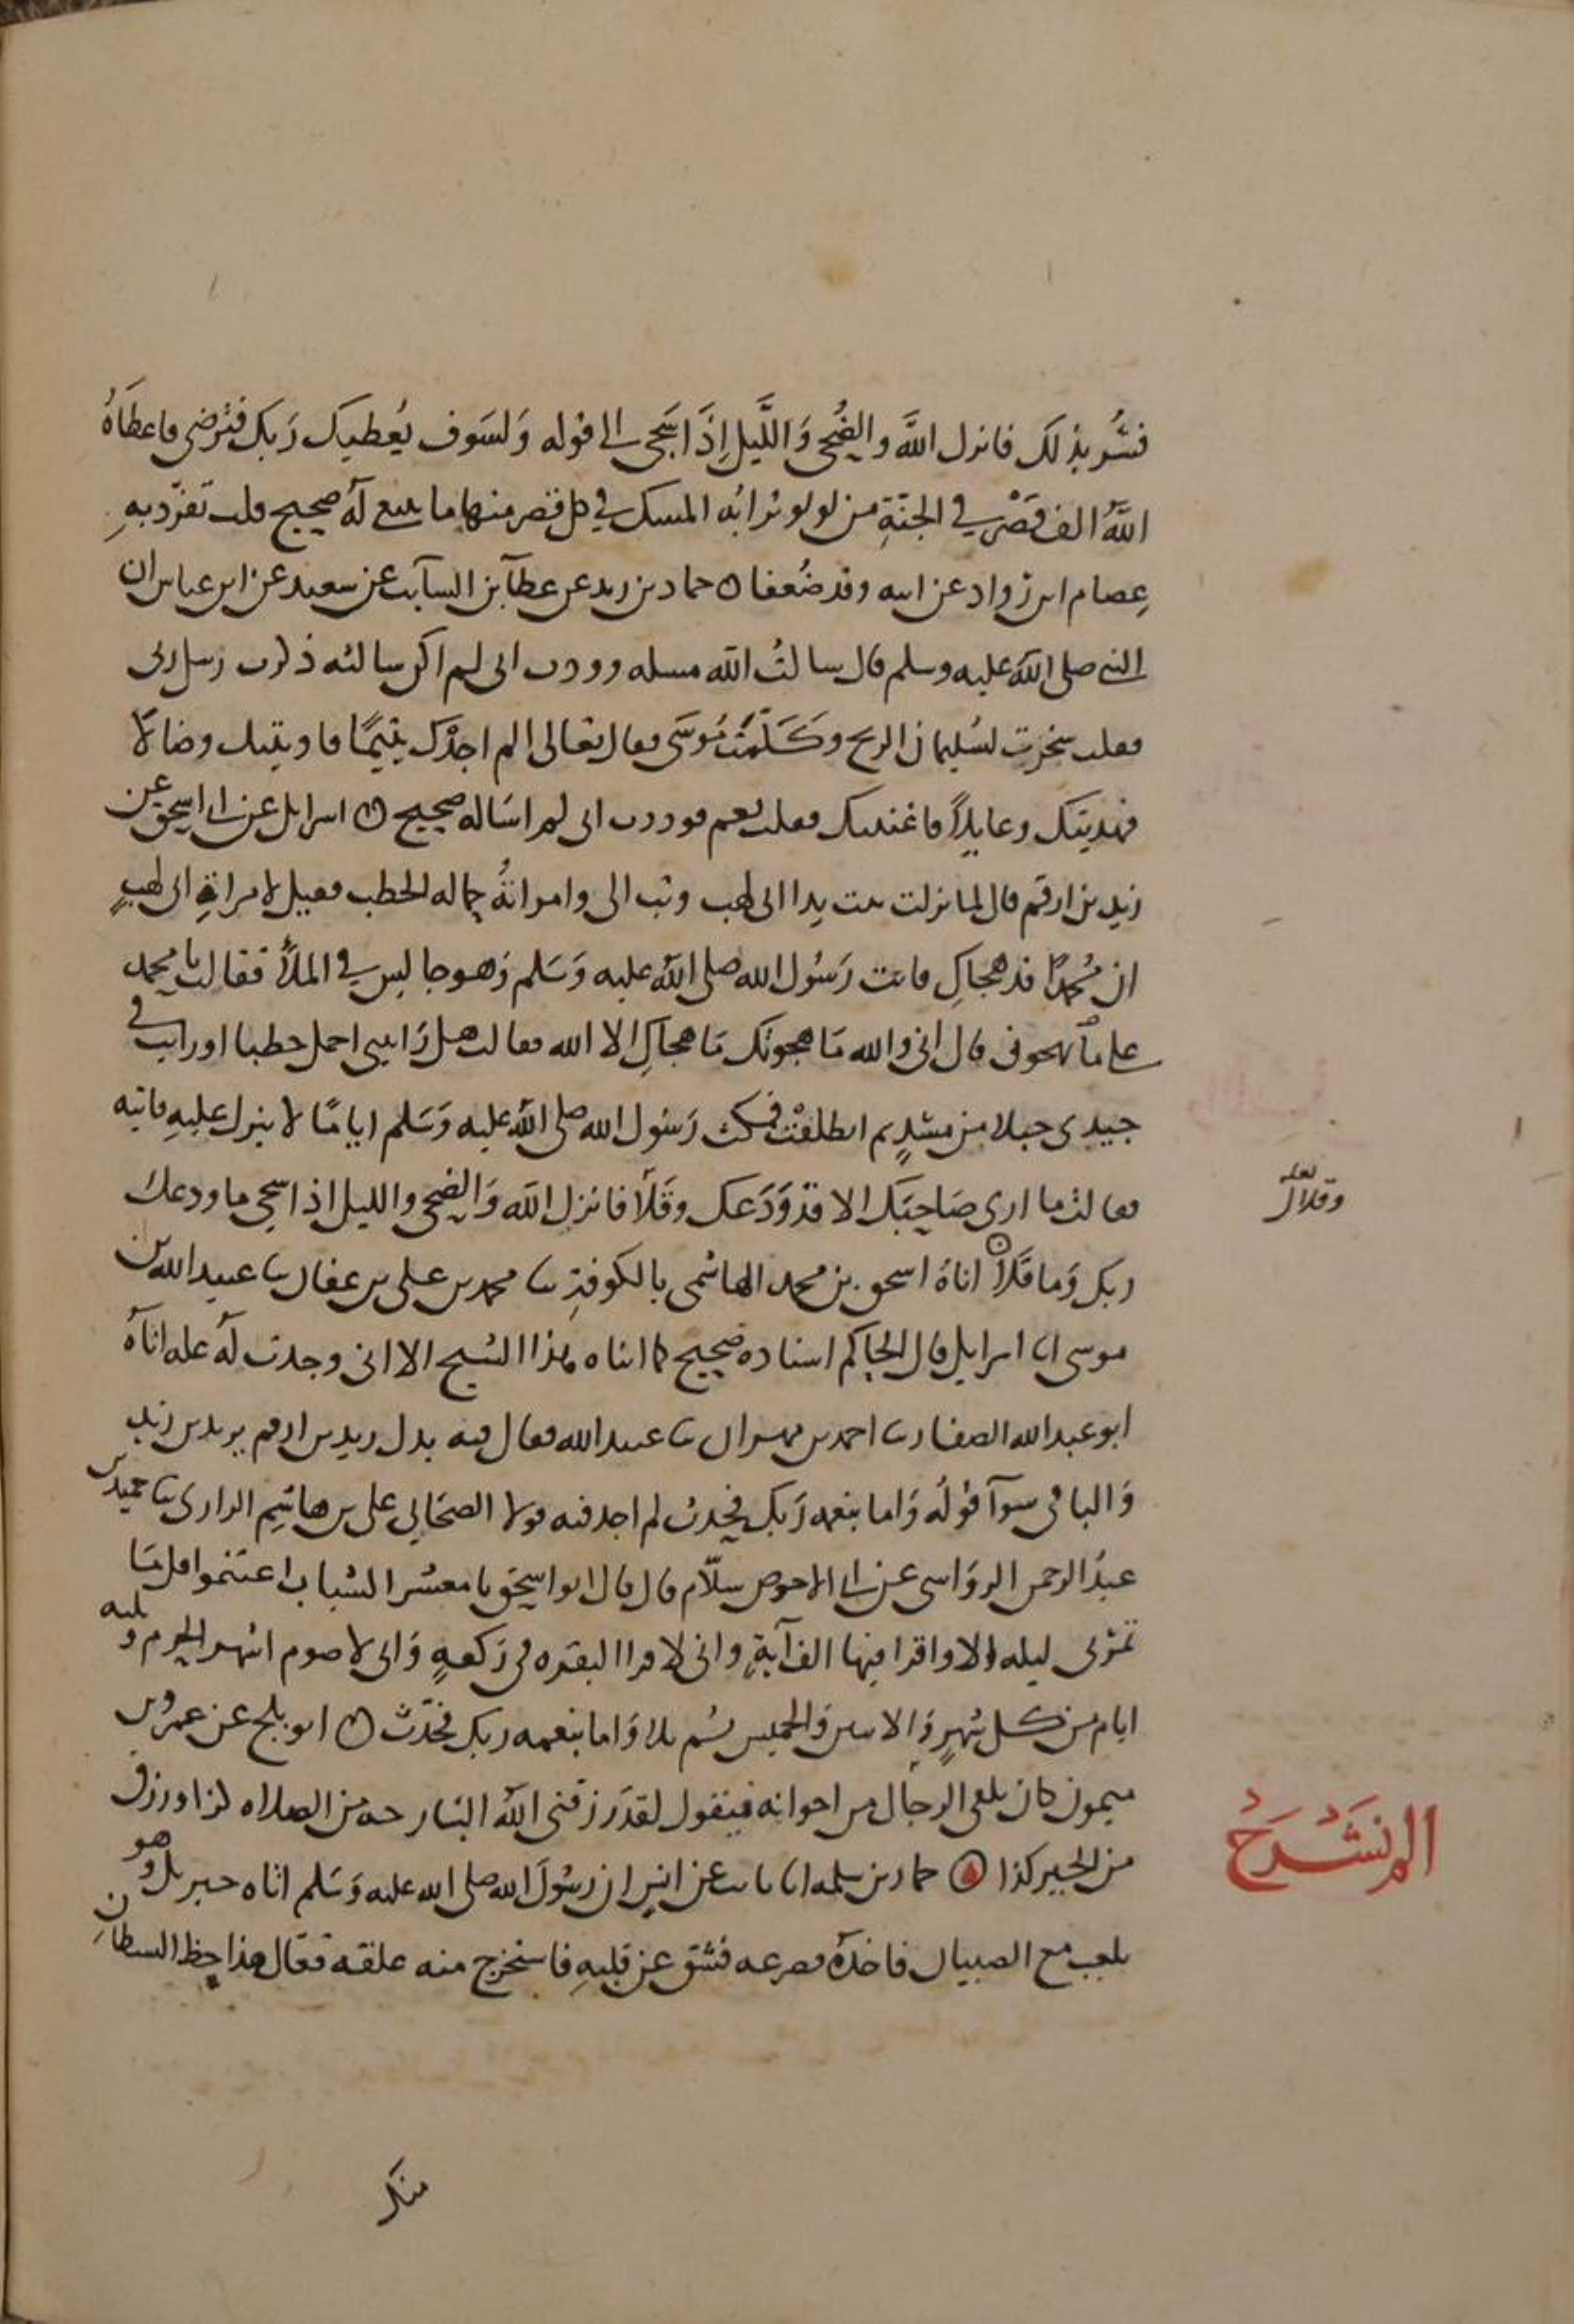 فسُر بذلك فانزل اللَّه والضُحى وَاللَّيل اِذَا سَجَى الى قوله وَلسَوف يُعطيك رَبك فتَرضى فاعطَاهُ
اللَّهُ الف قَصْر في الجنَّةِ من لولو ترابُه المسك في كل قصر منها ما ينبغى لَهُ صحيح قلت تفرّد بهِ
عِصام ابن رواد عن ابيه وقد ضُعفا ۞ حماد بن زيد عن عطآ بن السآيب عن سعيد عن ابن عباس ان
النبي صلى اللَّه عليه وسلم قال سالتُ اللَّه مسله ووددت انى لم اكن سالته ذكرت رسل ربى
فقلت سخرت لسُليمان الريح وكَلمتَ مُوسَى فقال تعالى الم اجدْك يتيمًا فاويتك وضالاً
فهديتك وعايلاً فاغنيتك فقلت نعم فوددت انى لم اسَاله صحيح ۞ اسرايل عن ابى اسحق عن
زيد بن ارقم قال لما نزلت تبت يدا ابى لهب وتب الى وامراتهُ حماله الحطب فقيل لامراةِ ابى لهبٍ
ان مُحمدًا قد هجاكِ فاتت رَسُول الله صلى اللَّه عليه وَسَلم وَهو جالس في الملأ فقالت يا محمد
على ما تهجونى قال انى والله مَا هجوتك مَا هجاكِ الا الله فقالت هل رَايتنى احمل حطبا او رايت فى
جيدى حبلا من مسَدٍ ثم انطلقتْ فمكث رَسُول الله صلى اللَّه عليه وَسَلم ايامًا لا ينزل عليهِ فاتته
فقالت ما ارى صَاحبَك الا قدْ وَدَعك وقَلاَ فانزل اللَّه وَالضحى والليل اذا سجى ما ودعك
لعله
وقلاك
ربك وَما قَلاَ ۞ اناهُ اسحق بن محمد الهاشمى بالكوفةِ ثنا محمد بن على بن عفان ثنا عبيد الله بن
موسى انا اسرايل قال الحاكم اسناده صحيح كما اناه هذا الشيخ الا انى وجدت لَهُ عله اناهُ
ابو عبد الله الصفار ثنا احمد بن مهران ثنا عبيد الله فقال فيه بدل زيد بن ارقم يزيد بن زيد
وَالباقى سوآ قولُه وَاما بنعمه رَبك فحدث لم اجد فيه قولا لصحَابي على بن هاشِم الرازى ثنا حميد بن
عبدُ الرحمن الروَاسى عن ابى الاحوص سلاّم قال قال ابو اسحق يا معشر الشباب اغتنموا قل مَا
تمرّ بى ليله الا واقرا فيها الف آيةٍ وانى لاقرا البقره فى رَكعهٍ وَانى لاصوم اشهر الحرم وثلثه
ايام من كل شهرٍ وَالاثنين وَالخميس ثم تلا وَاما بنعمه ربك فحدّث ۞ ابو بلج عن عمرو بن
ميمون كان يلقى الرجَال من اخوانه فيقول لقد رَزقنى اللَّه البَارحه من الصلاه كذا ورزق
من الخير كذا ۞ حماد بن سلمه انا ثابت عن انسٍ ان رسُولَ الله صلى الله عليه وَسَلم اتاه جبريل وهو
الم نشرح
يلعب مع الصبيان فاخذَه فصرعه فشق عن قلبهِ فاستخرج منه علقه فقال هذا حظ الشيطان
منك